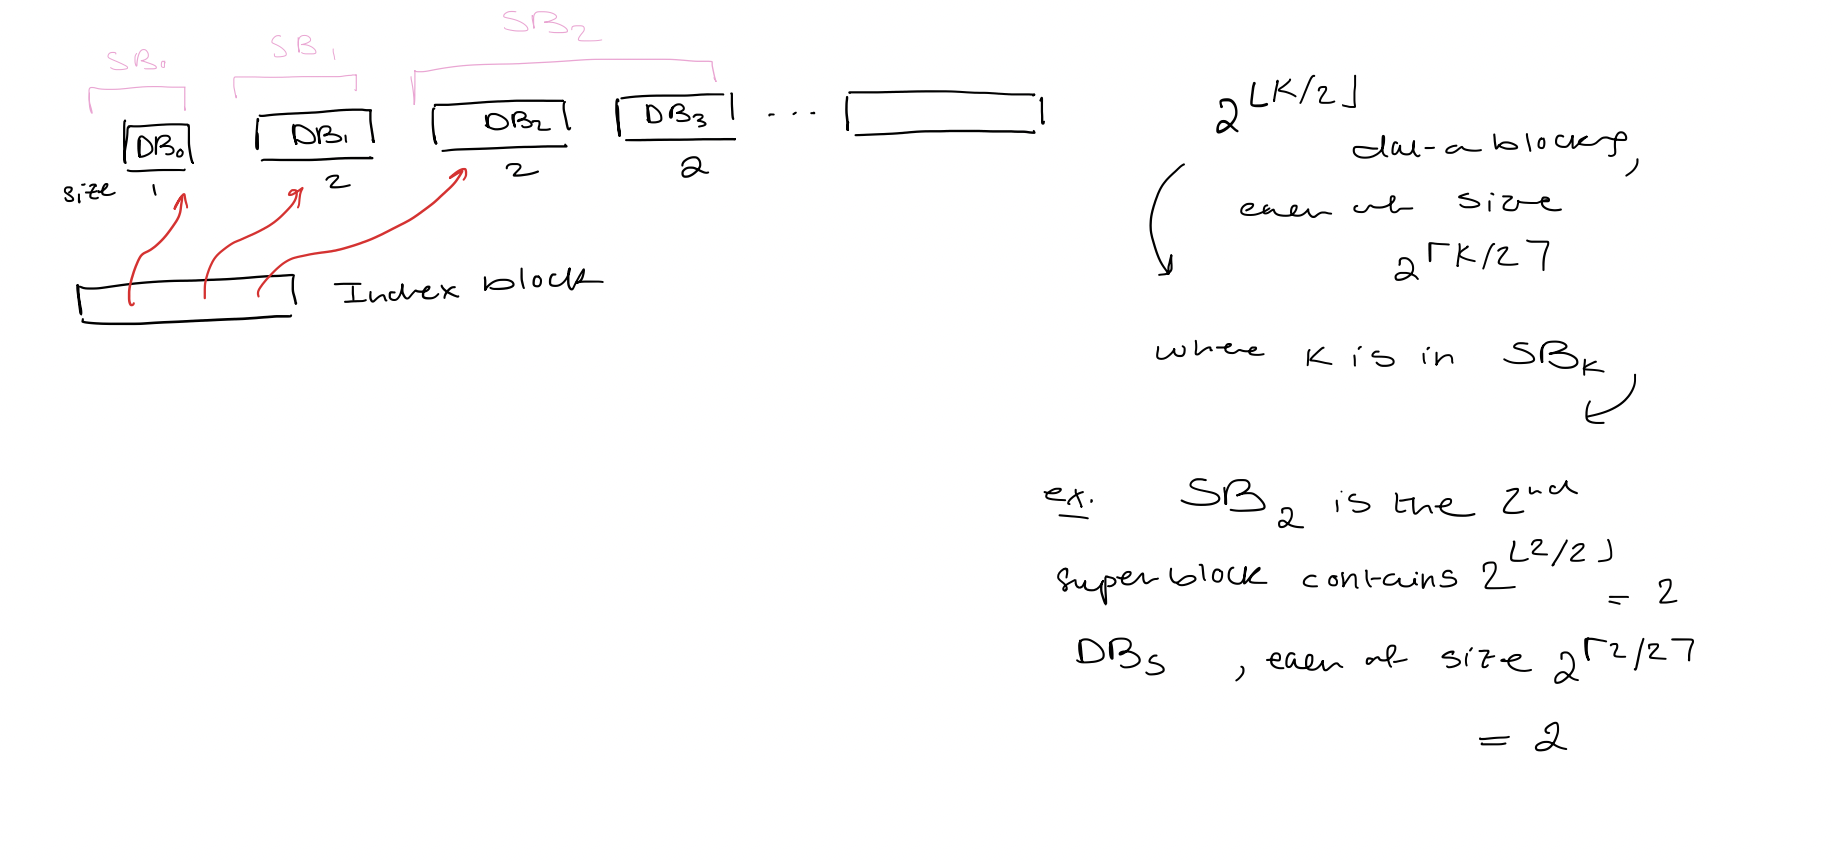 SB₀ SB₁ SB₂
DB₀ DB₁ DB₂ DB₃ ...
size 1 2 2 2
Index block
2^⌊K/2⌋
data blocks,
each of size
2^⌈K/2⌉
where K is in SB_K
ex. SB₂ is the 2nd
superblock contains 2^⌊2/2⌋
= 2
DBs , each of size 2^⌈2/2⌉
= 2